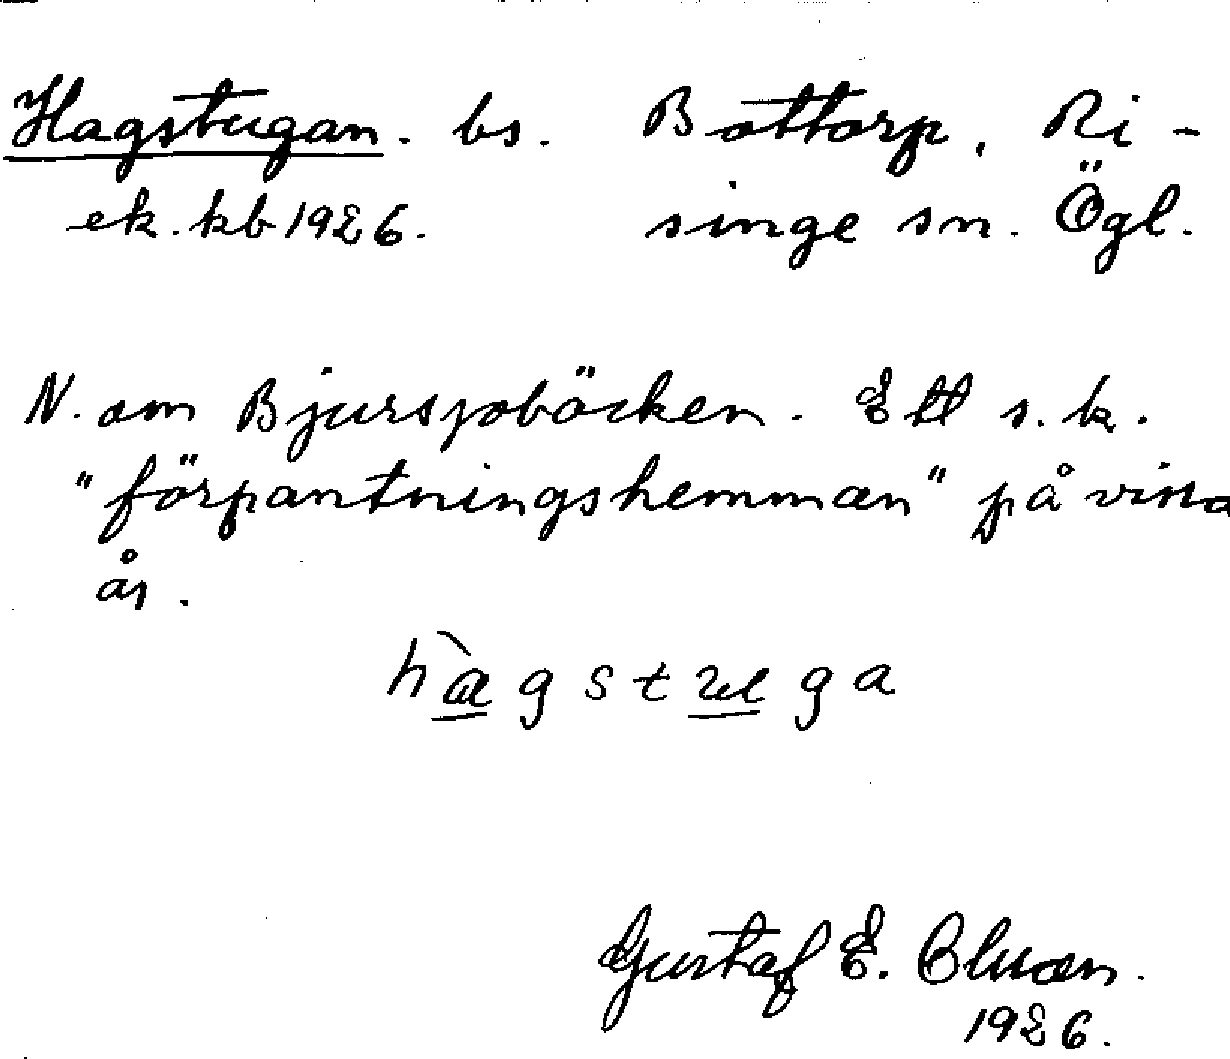 Hagstugan. bs. Bottorp, Ri-
ek. kb 1926. singe sn. Ögl.
N. om Bjursjöbäcken. Ett s.k.
"förpantningshemman" på vissa
år.
Gustaf E.
1926.